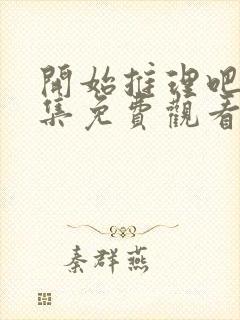 開始推理吧
集免費觀看
秦群燕